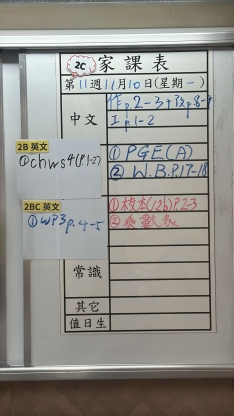 2C 家課表
第11週11月10日(星期一)
中文
作p.2-3+改p.8-9
工p.1-2
2B 英文
①chws4(P.1-2)
①PGE(A)
②W.B.P.17-18
2BC 英文
①WP3p.4-5
①校本(2b)P.2-3
②乘數表
常識
其它
值日生